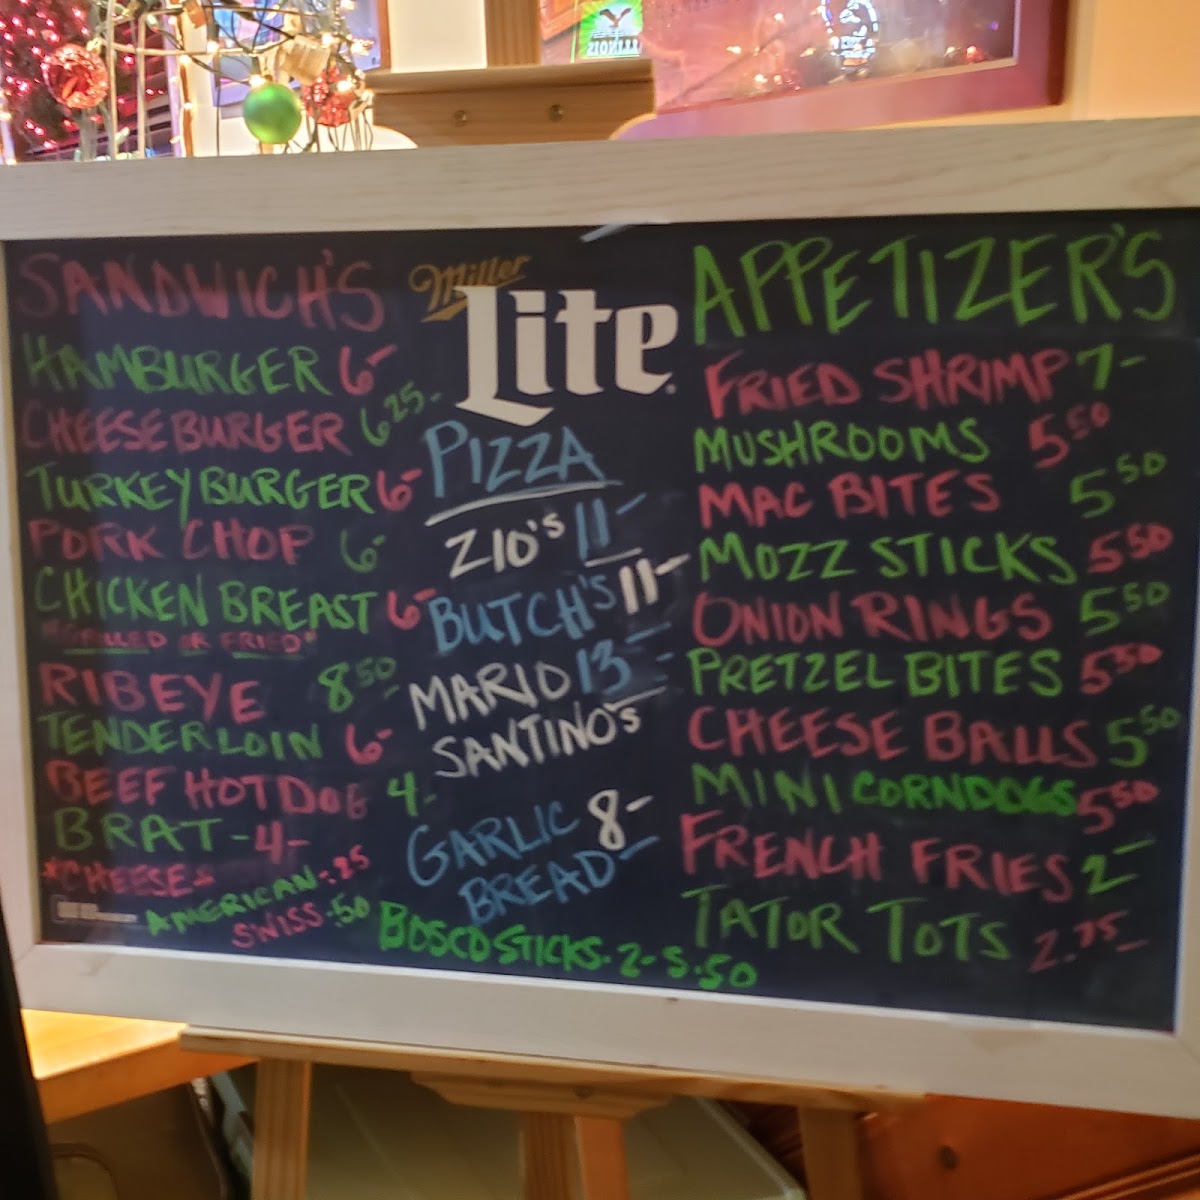 ILLINOIS
SANDWICH'S
HAMBURGER 6-
CHEESEBURGER 6 25-
TURKEY BURGER 6-
PORK CHOP 6-
CHICKEN BREAST 6-
*GRILLED OR FRIED*
RIBEYE 8 50-
TENDERLOIN 6-
BEEF HOT DOG 4-
BRAT-4-
*CHEESE*
AMERICAN-.25
SWISS-.50
Miller
Lite
PIZZA
ZIO'S 11-
BUTCH'S 11-
MARIO 13-
SANTINO'S
GARLIC 8-
BREAD-
BOSCO STICKS-2-5.50
APPETIZER'S
FRIED SHRIMP 7-
MUSHROOMS 5 50
MAC BITES 5 50
MOZZ STICKS 5 50
ONION RINGS 5 50
PRETZEL BITES 5 50
CHEESE BALLS 5 50
MINI CORNDOGS 5 50
FRENCH FRIES 2-
TATOR TOTS 2.75-